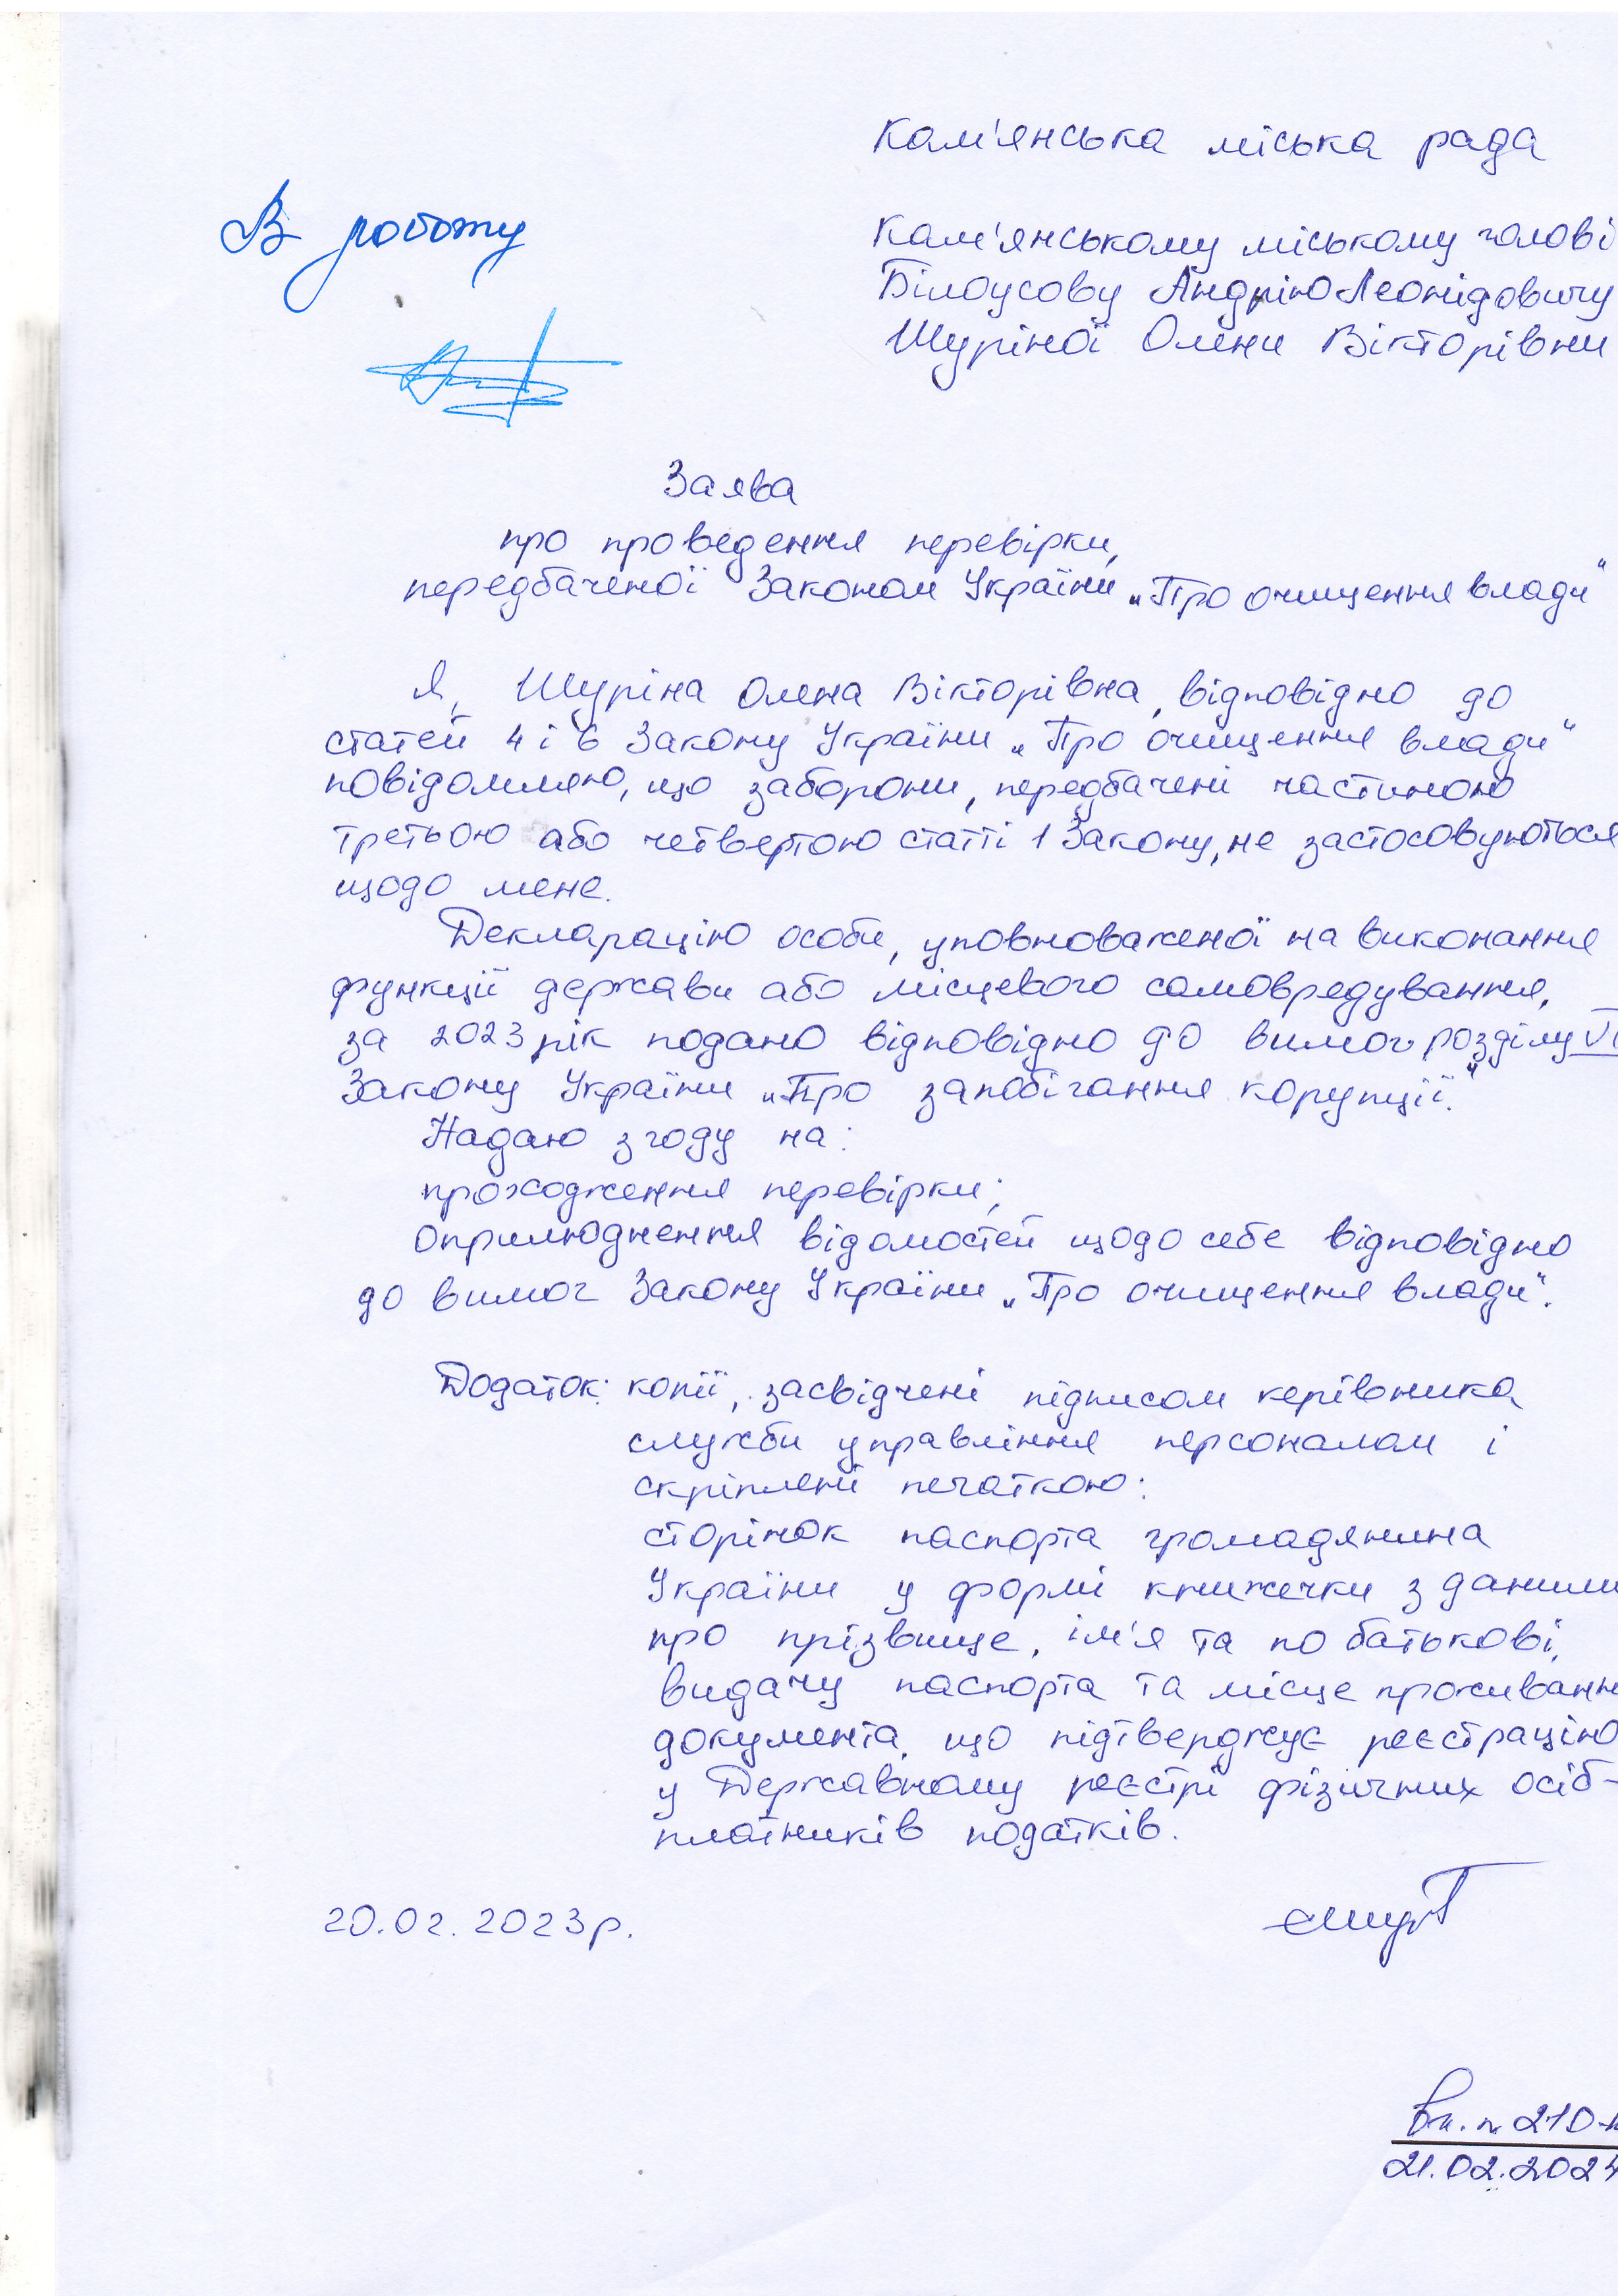 Кам'янська міська рада
В роботу
Кам'янському міському голові
Білоусову Андрію Леонідовичу
Шуріної Олени Вікторівни
Заява
про проведення перевірки,
передбаченої Законом України „Про очищення влади"
Я, Шуріна Олена Вікторівна, відповідно до
статей 4 і 6 Закону України „Про очищення влади"
повідомляю, що заборони, передбачені частиною
третьою або четвертою статті 1 Закону, не застосовуються
щодо мене.
Декларацію особи, уповноваженої на виконання
функції держави або місцевого самоврядування,
за 2023 рік подано відповідно до вимог розділу VI
Закону України „Про запобігання корупції".
Надаю згоду на:
проходження перевірки;
оприлюднення відомостей щодо себе відповідно
до вимог Закону України „Про очищення влади".
Додаток: копії, засвідчені підписом керівника
служби управління персоналом і
скріплені печаткою:
сторінок паспорта громадянина
України у формі книжечки з даними
про прізвище, ім'я та по батькові,
видачу паспорта та місце проживанн
документа, що підтверджує реєстрацію
у Державному реєстрі фізичних осіб-
платників податків.
20.02.2023р.
21.02.2024